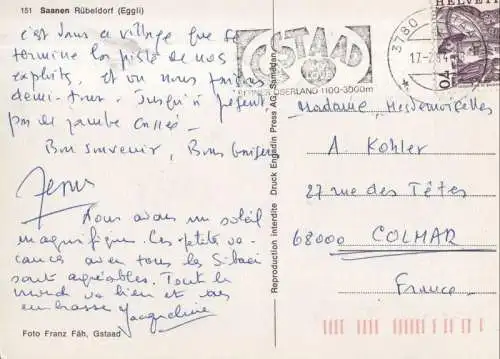 151 Saanen Rübeldorf (Eggli)
c'est dans ce village que se
termine la piste de nos
exploits, et on nous faisons
demi-tour. Jusqu'à présent
pas de jambe cassée.
Bon souvenir, Bons baisers
Nous avons un soleil
magnifique. Ces petites va-
cances avec tous les
sont agréables. Tout le
monde va bien et vous
embrasse Jacqueline
Foto Franz Fäh, Gstaad
Reproduction interdite Druck Engadin Press AG, Samedan
GSTAAD
BERNER OBERLAND 1100-3000m
3780
17-2
HELVETIA
04
Madame, Mesdemoiselles
A Kohler
27 rue des Têtes
68000 COLMAR
France